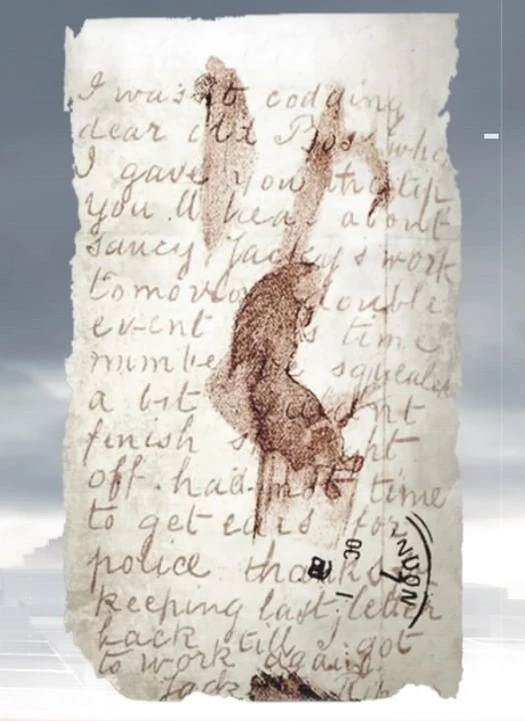 I wasnt codding
dear old Boss when
I gave you the tip
you'll hear about
saucy Jackys work
tomorrow double
event time
number squealed
a bit couldnt
finish
off. had not time
to get ears for
police thanks
keeping last letter
back till I got
to work again.
Jack